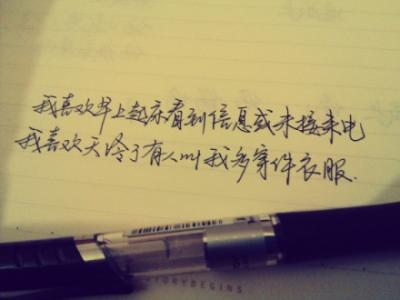 我喜欢早上起床看到信息或未接来电
我喜欢天冷了有人叫我多穿件衣服.
TORYBEGINS